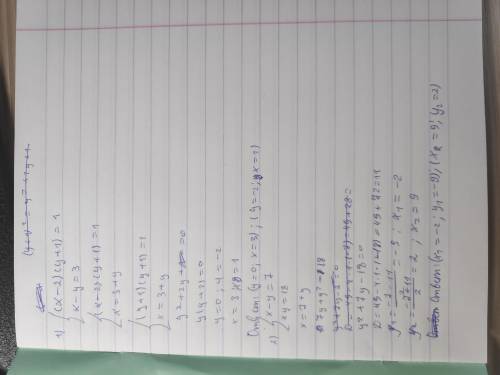 1) { (x-2)(y+1)=1
x-y=3
{ (x-2)(y+1)=1
x=3+y
{ (y+1)(y+1)=1
x=3+y
y²+2y+1-1=0
y(y+2)=0
y=0; y=-2
x=3; x=1
Ответ: (y=0; x=3); (y=-2; x=1)
2) { x-y=7
xy=18
x=7+y
7y+y²=18
y²+7y-18=0
D=49-4·(1·(-18))=49+72=11
y₁=-7-11/2=-9; x₁=-2
y₂=-7+11/2=2; x₂=9
Ответ: (x₁=-2; y₁=-9); (x₂=9; y₂=2)